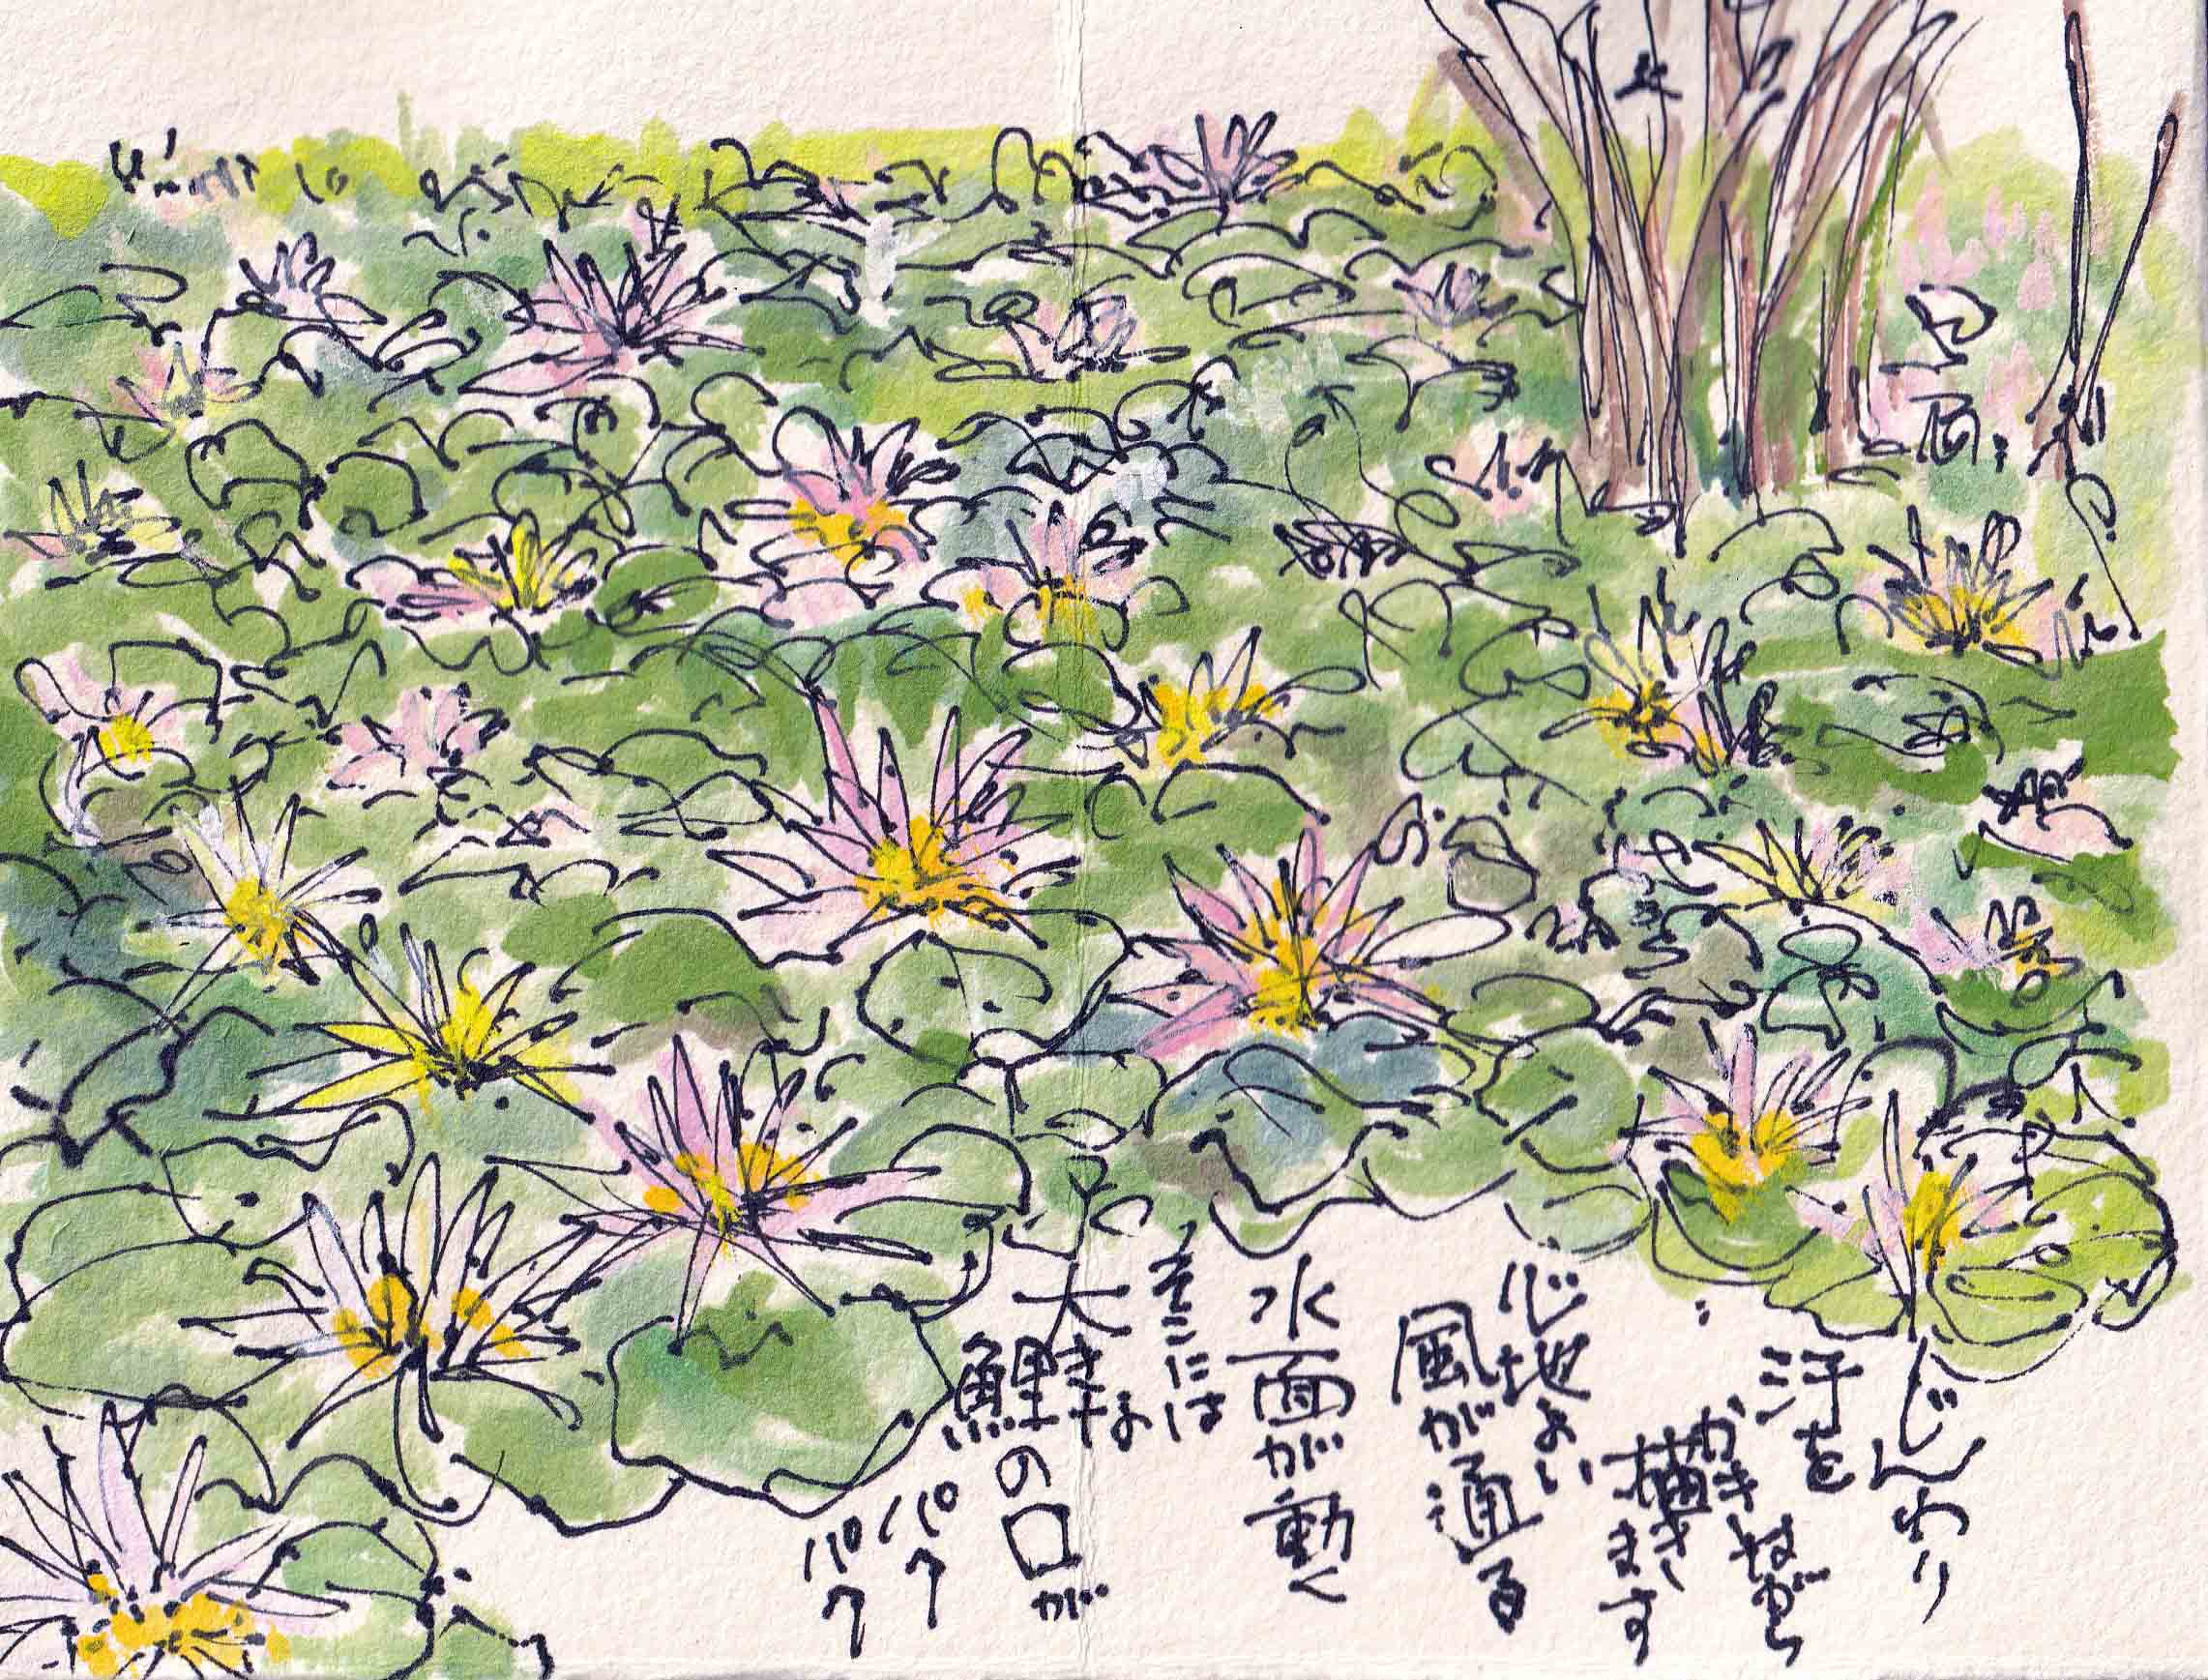 じんわり
汗を
かきながら
描きます
心地よい
風が通る
水面が動く
そこには
大きな
鯉の口が
パク
パク